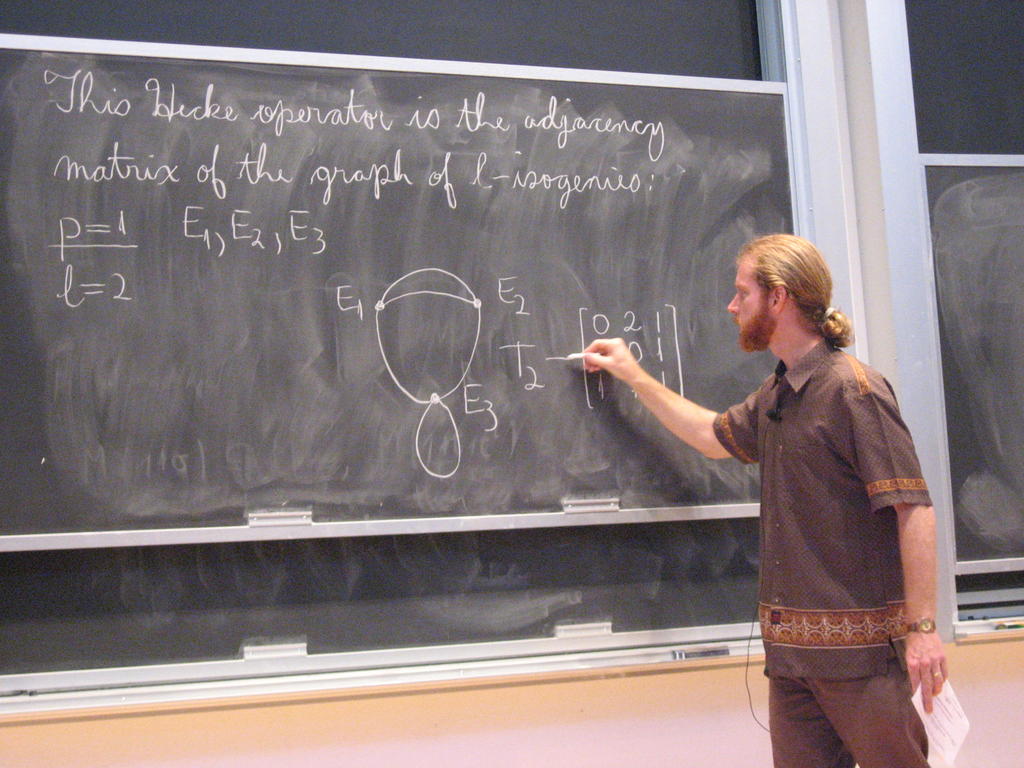 This Hecke operator is the adjacency
matrix of the graph of l-isogenies:
p=1 E1, E2, E3
l=2
E1 E2
E3
T2
0 2 1
0 1
1 1